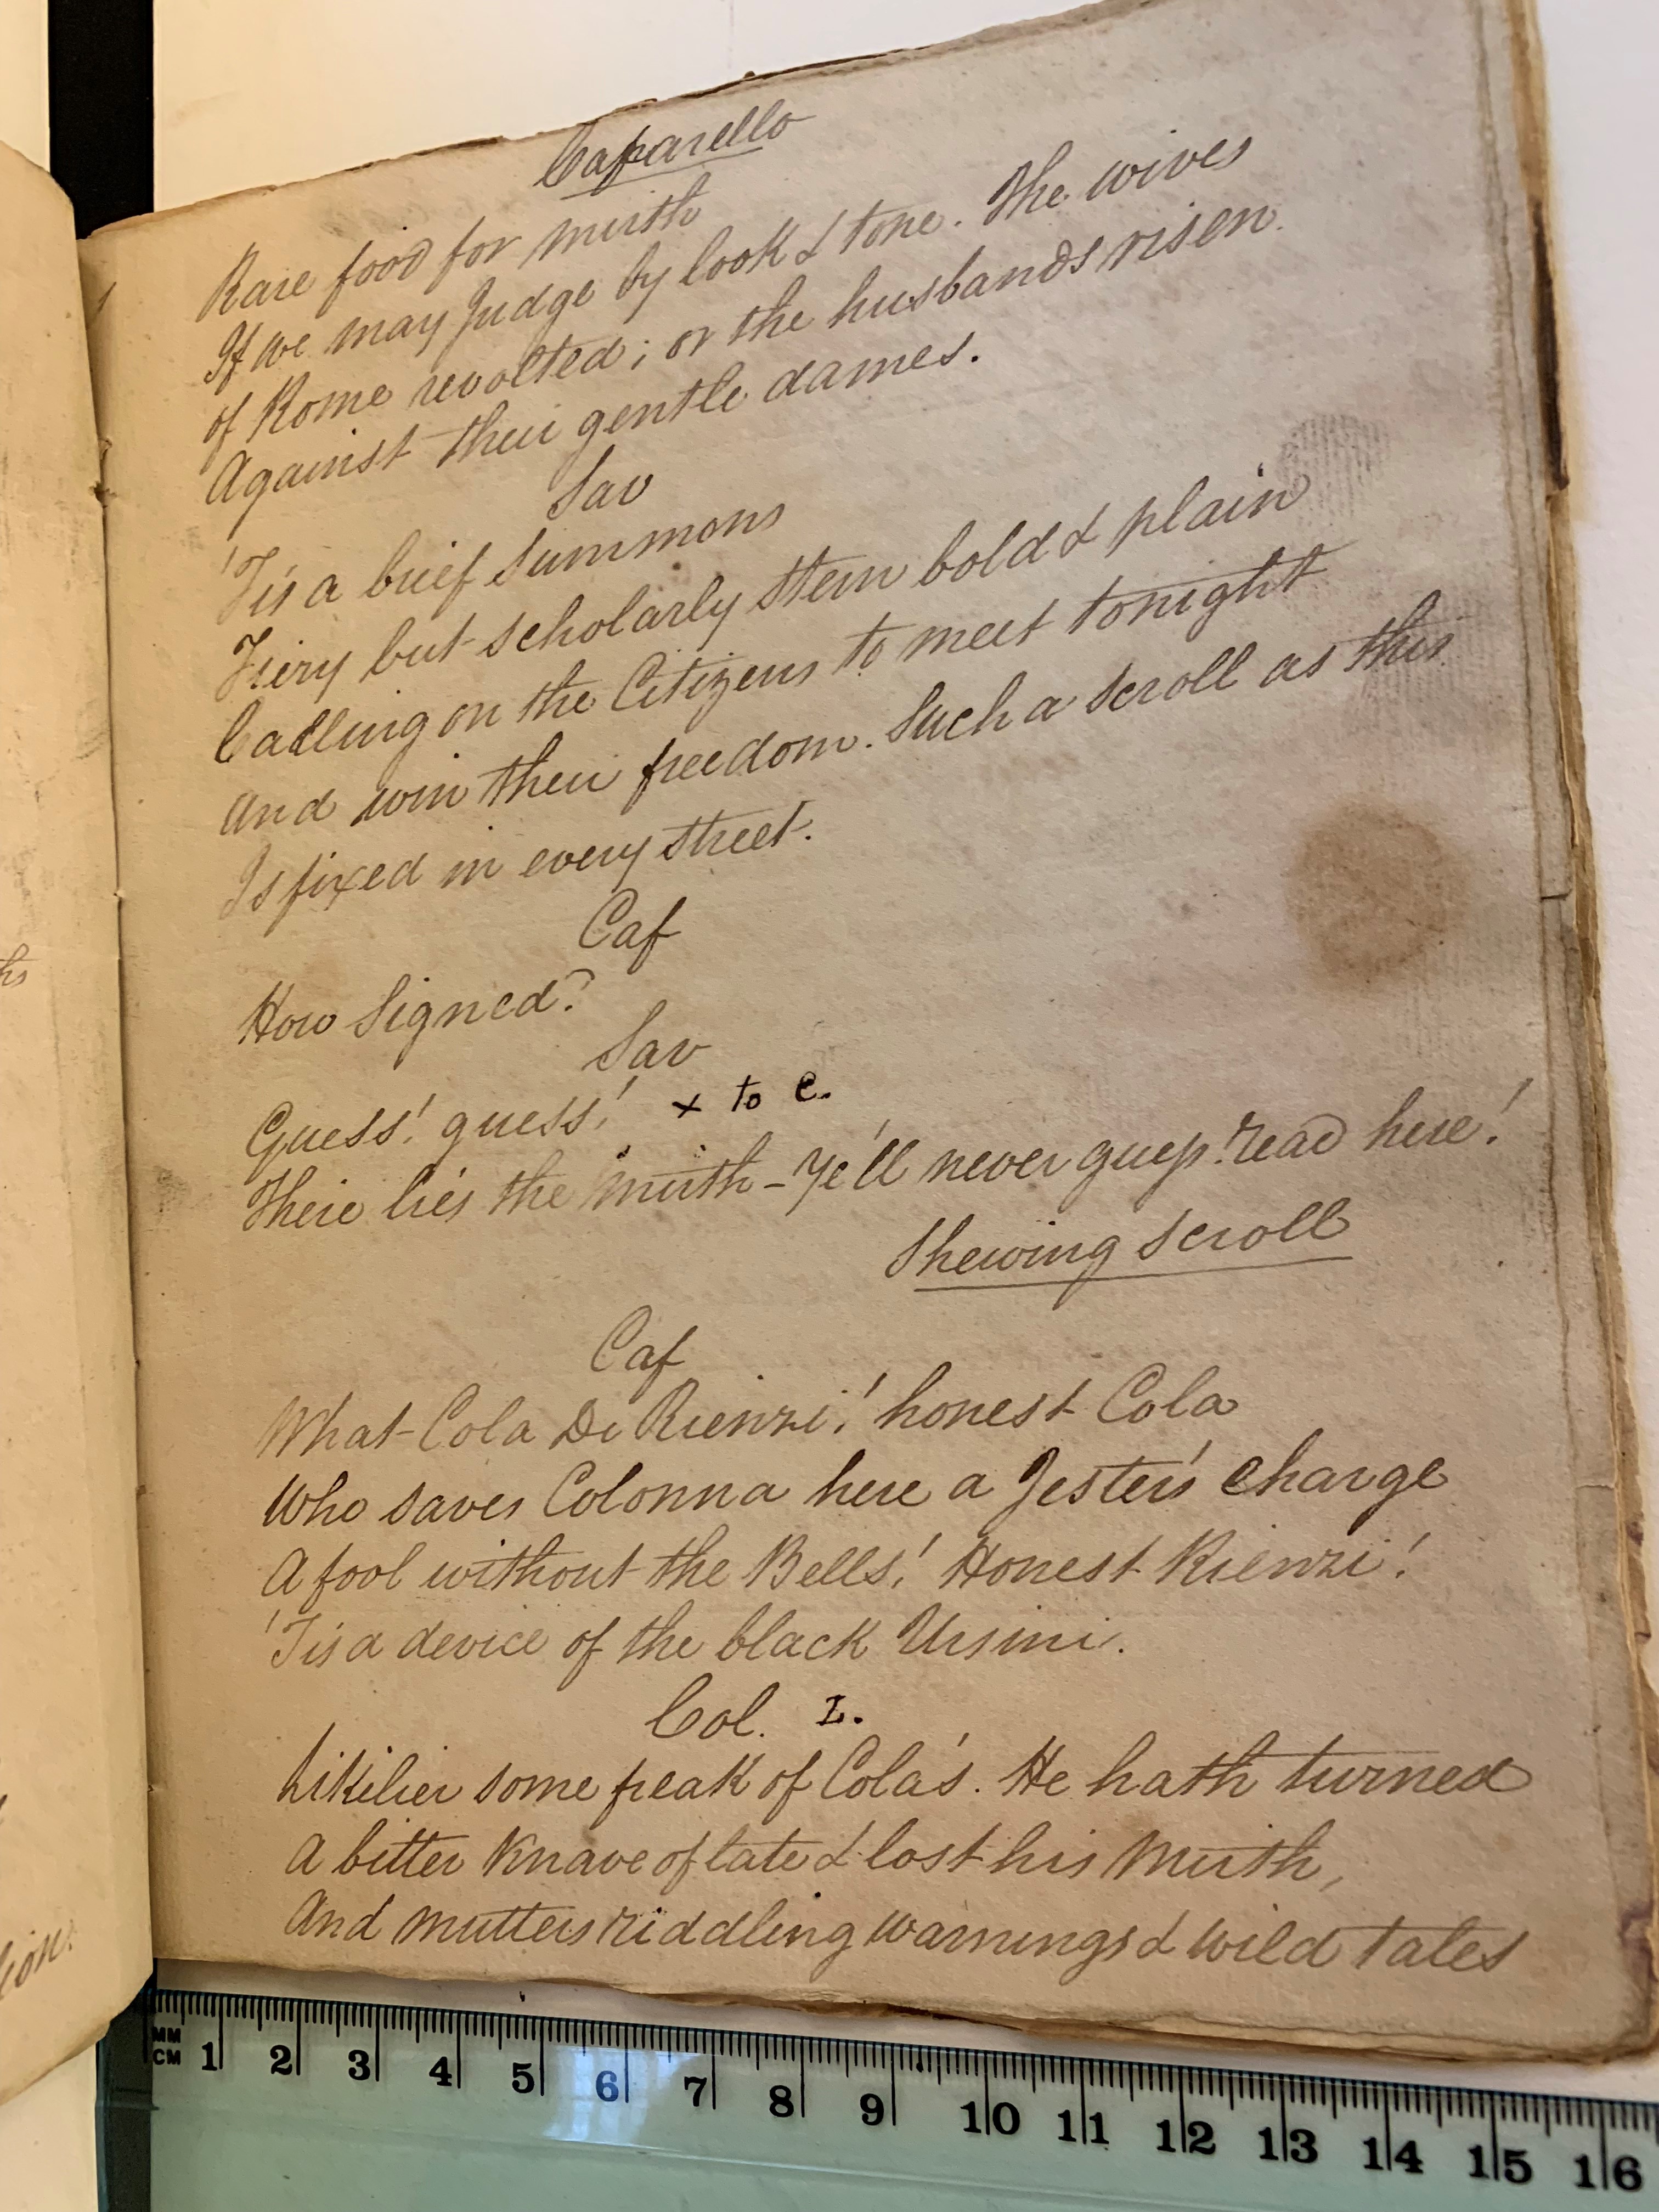 Cafarello
Rare food for mirth
If we may judge by look & tone. The wives
of Rome revolted; or the husbands risen
Against their gentle dames.
Sav
'Tis a brief summons
Fiery but scholarly stern bold & plain
Calling on the Citizens to meet tonight
And win their freedom. Such a scroll as this
Is fixed in every street.
Caf
How Signed?
Sav
Guess! guess! x to C.
There lies the mirth - Ye'll never guess! read here!
Shewing scroll
Caf
What Cola Di Rienzi! honest Cola
Who saves Colonna here a Jester's charge
A fool without the Bells! Honest Rienzi!
'Tis a device of the black Ursini.
Col. L.
Likilier some freak of Cola's. He hath turned
A bitter Knave of late & lost his Mirth,
And mutters riddling warnings & wild tales
MM
CM 1 2 3 4 5 6 7 8 9 10 11 12 13 14 15 16